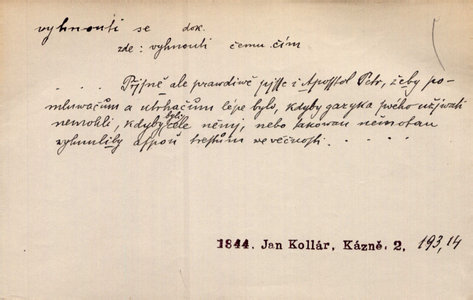 vyhnouti se dok.
zde: vyhnouti čemu čím
. . . . . Přísně ale prawdiwě pjsse i Aposstol Petr, žeby po-
mluwačům a utrhačům lépe bylo, kdyby gazyka swého užjwati
nemohli, kdyby byli cele němj, nebo takowau němotau
wyhnuliby aspoň trestům we wěčnosti. . . . .
1844. Jan Kollár, Kázně. 2, 193,14